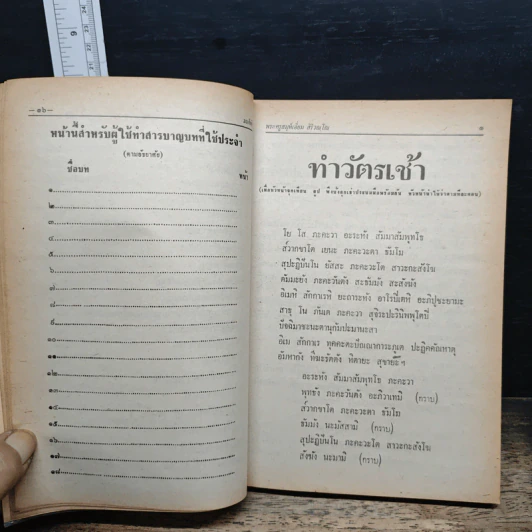 — ๑๖ —
หน้านี้สำหรับผู้ใช้ทำสารบาญบทที่ใช้ประจำ
(ตามอัธยาศัย)
ชื่อบท หน้า
๑
๒
๓
๔
๕
๖
๗
๘
๙
๑๐
๑๑
๑๒
๑๓
๑๔
๑๕
๑๖
๑๗
๑๘
๑
ทำวัตรเช้า
โย โส ภะคะวา อะระหัง สัมมาสัมพุทโธ
สวากขาโต เยนะ ภะคะวะตา ธัมโม
สุปะฏิปันโน ยัสสะ ภะคะวะโต สาวะกะสังโฆ
ตัมมะยัง ภะคะวันตัง สะธัมมัง สะสังฆัง
อิเมหิ สักกาเรหิ ยะถาระหัง อาโรปิเตหิ อะภิปูชะยามะ
สาธุ โน ภันเต ภะคะวา สุจิระปะรินิพพุโตปิ
ปัจฉิมาชะนะตานุกัมปะมานะสา
อิเม สักกาเร ทุคคะตะปัณณาการะภูเต ปะฏิคคัณหาตุ
อัมหากัง ทีฆะรัตตัง หิตายะ สุขายะ ฯ
อะระหัง สัมมาสัมพุทโธ ภะคะวา
พุทธัง ภะคะวันตัง อะภิวาเทมิ (กราบ)
สวากขาโต ภะคะวะตา ธัมโม
ธัมมัง นะมัสสามิ (กราบ)
สุปะฏิปันโน ภะคะวะโต สาวะกะสังโฆ
สังฆัง นะมามิ (กราบ)